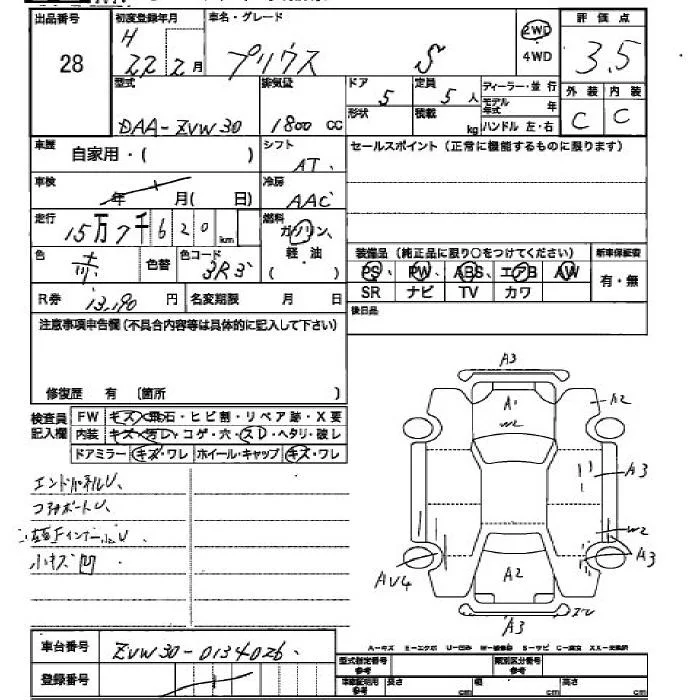 出品番号 初度登録年月 車名・グレード 評価点
28 H 22年2月 プリウス S 2WD 4WD 3.5
型式 排気量 ドア 5 定員 5人 ディーラー・並行 外装 内装
DAA-ZVW30 1800cc 形状 積載 kg モデル年式 年 ハンドル 左・右 C C
車歴 自家用・( ) シフト AT セールスポイント(正常に機能するものに限ります)
車検 年 月( 日) 冷房 AAC
走行 15万7千620km 燃料 ガソリン、軽油 ( )
色 赤 色替 色コード 3R3
装備品(純正品に限り○をつけてください) 新車保証書
PS PW ABS エアB AW 有・無
SR ナビ TV カワ
R券 13,190円 名変期限 月 日 後日品
注意事項申告欄(不具合内容等は具体的に記入して下さい)
修復歴 有 〔箇所 〕
検査員記入欄 FW キズ・飛石・ヒビ割・リペア跡・X要
内装 キズ・汚レ・コゲ・穴・スレ・ヘタリ・破レ
ドアミラー キズ・ワレ ホイール・キャップ キズ・ワレ
エンドパネルU、
コアサポートU、
小キズ凹
A3
A1
W2
A2
A3
W2
A3
AU4
A2
A3
A-キズ E-エクボ U-凹み W-補修跡 S-サビ C-腐食 XX-交換済
車台番号 ZVW30-0134026
登録番号
型式指定番号 参考 類別区分番号 参考
車庫証明用 参考 長さ cm 幅 cm 高さ cm